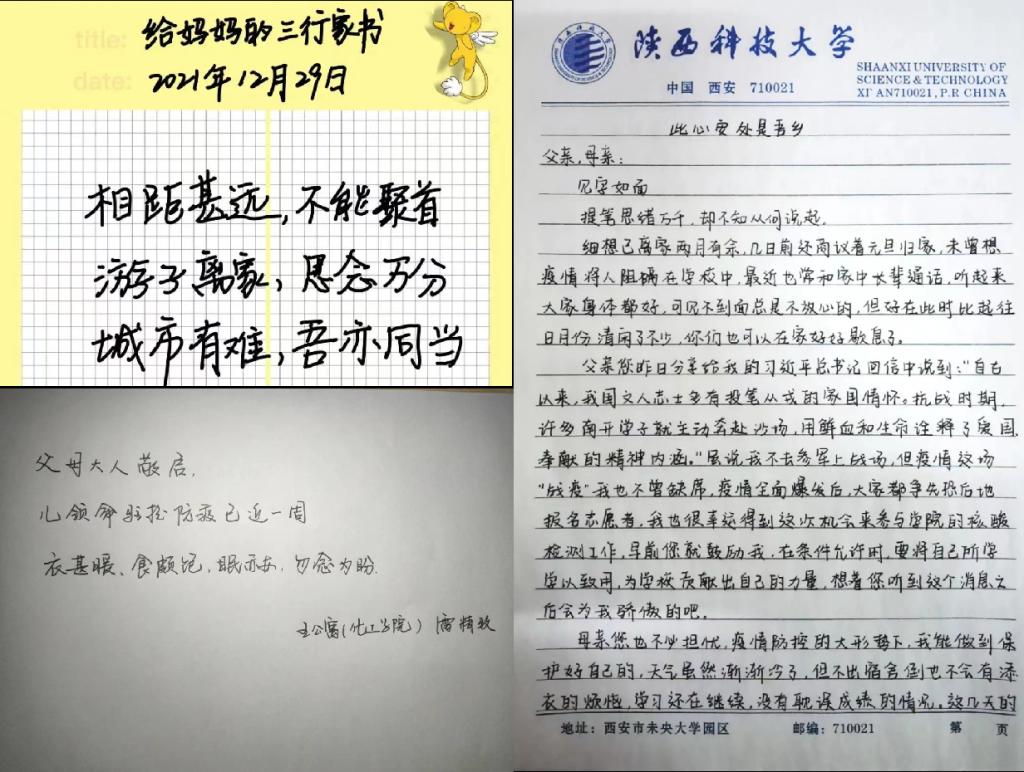 title: 给妈妈的三行家书
date: 2021年12月29日
相距甚远,不能聚首
游子离家,思念万分
城市有难,吾亦同当
父母大人敬启,
儿领命驻校防疫已近一周
衣甚暖、食颇饱,眠亦安,勿念为盼.
(化工学院)
陕西科技大学
SHAANXI UNIVERSITY OF
SCIENCE & TECHNOLOGY
XI'AN710021,P.R CHINA
中国 西安 710021
此心安处是吾乡
父亲,母亲:
见字如面
提笔思绪万千,却不知从何说起.
细想已离家两月有余,几日前还商议着元旦归家,未曾想
疫情将人阻隔在学校中,最近也常和家中长辈通话,听起来
大家身体都好,可见不到面总是不放心的,但好在此时比起往
日月份清闲了不少,你们也可以在家好好歇息了。
父亲您昨日分享给我的习近平总书记回信中说到:“自古
以来,我国文人志士多有投笔从戎的家国情怀。抗战时期,
许多南开学子就主动奔赴沙场,用鲜血和生命诠释了爱国
奉献的精神内涵。”虽说我不去参军上战场,但疫情这场
“战疫”我也不曾缺席,疫情全面爆发后,大家都争先恐后地
报名志愿者,我也很幸运得到这次机会来参与学院的核酸
检测工作,早前您就鼓励我,在条件允许时,要将自己所学
学以致用,为学校贡献出自己的力量,想着您听到这个消息之
后会为我骄傲的吧.
母亲您也不必担忧,疫情防控的大形势下,我能做到保
护好自己的,天气虽然渐渐冷了,但不出宿舍倒也不会有添
衣的烦恼,学习还在继续,没有耽误成绩的情况。这几天的
地址:西安市未央大学园区 邮编:710021 第 页